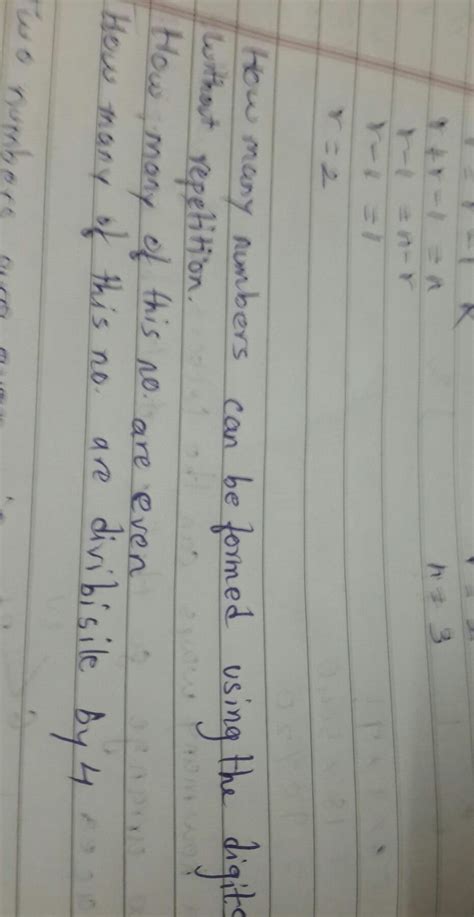 r + r - 1 = n
r - 1 = n - r
n = 3
r - 1 = 1
r = 2
How many numbers can be formed using the digits
without repetition.
How many of this no. are even
How many of this no. are divibisile by 4
Two numbers